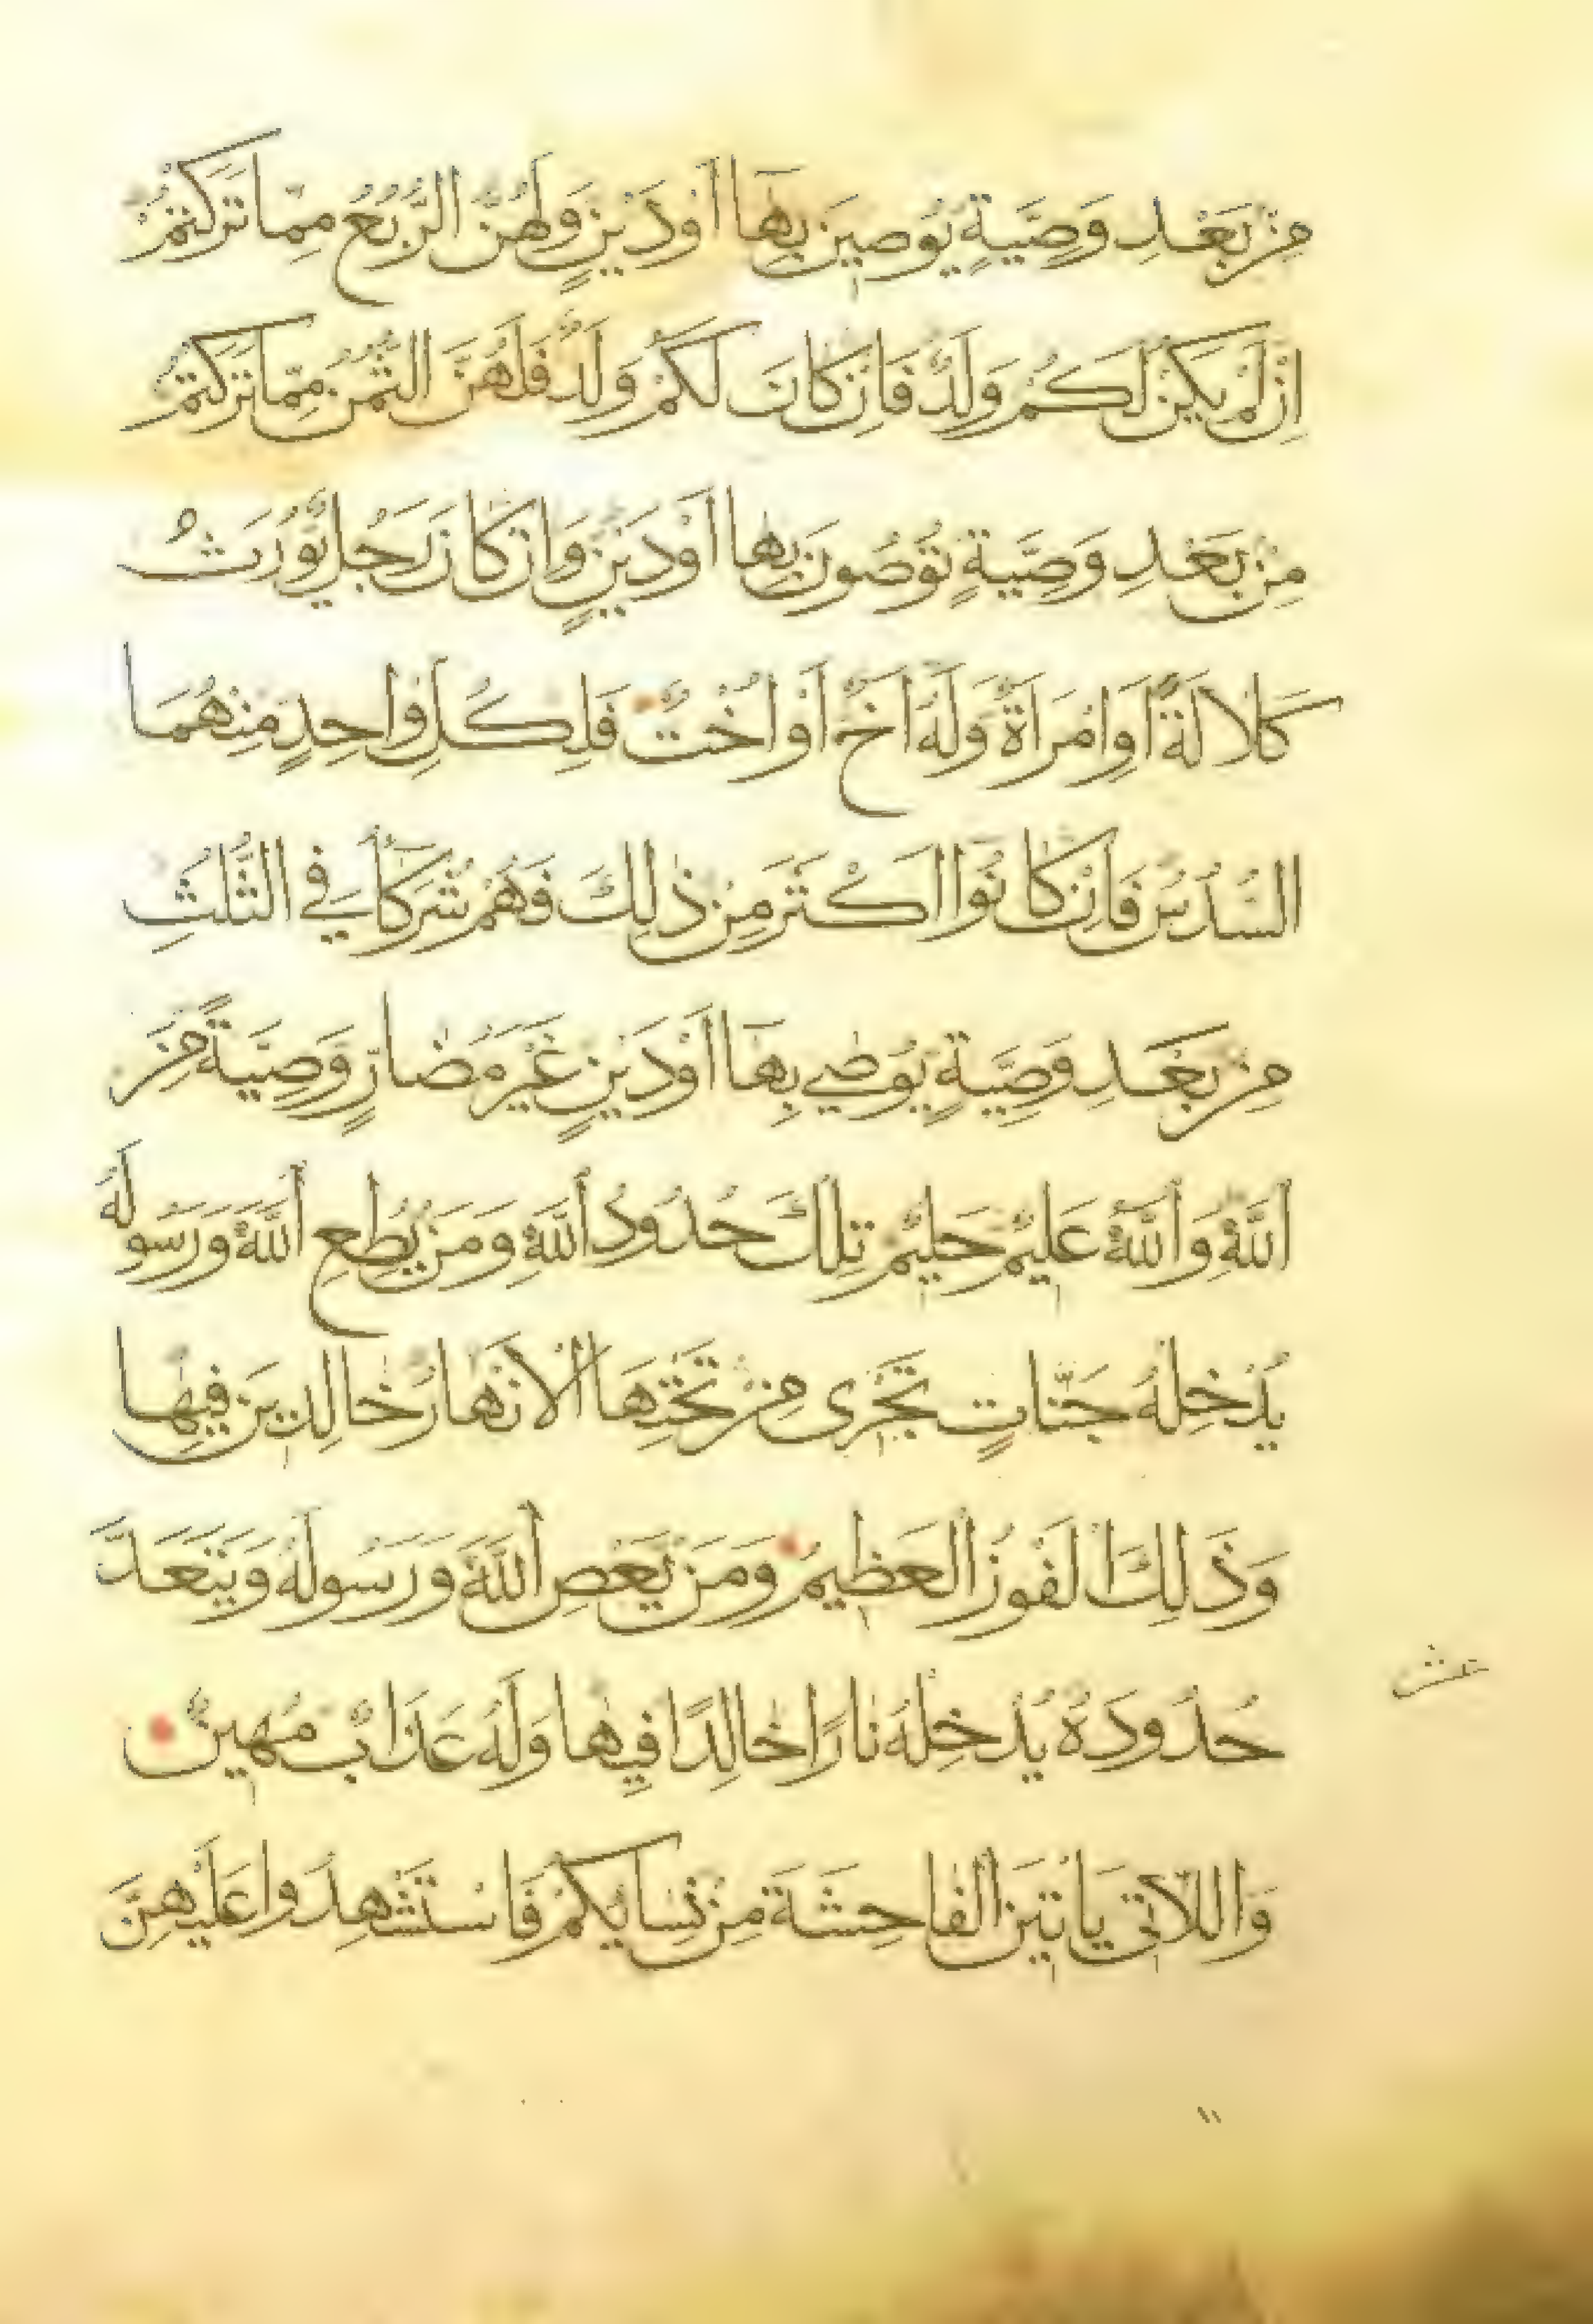 مِنْ بَعْدِ وَصِيَّةٍ يُوصِينَ بِهَا أَوْ دَيْنٍ وَلَهُنَّ الرُّبُعُ مِمَّا تَرَكْتُمْ
اِنْ لَمْ يَكُنْ لَكُمْ وَلَدٌ فَاِنْ كَانَ لَكُمْ وَلَدٌ فَلَهُنَّ الثُّمُنُ مِمَّا تَرَكْتُمْ
مِنْ بَعْدِ وَصِيَّةٍ تُوصُونَ بِهَا اَوْ دَيْنٍ وَاِنْ كَانَ رَجُلٌ يُورَثُ
كَلَالَةً اَوِ امْرَاَةٌ وَلَهُ اَخٌ اَوْ اُخْتٌ فَلِكُلِّ وَاحِدٍ مِنْهُمَا
السُّدُسُ فَاِنْ كَانُوا اَكْثَرَ مِنْ ذَلِكَ فَهُمْ شُرَكَاءُ فِي الثُّلُثِ
مِنْ بَعْدِ وَصِيَّةٍ يُوصَى بِهَا اَوْ دَيْنٍ غَيْرَ مُضَارٍّ وَصِيَّةً مِنَ
اللَّهِ وَاللَّهُ عَلِيمٌ حَلِيمٌ تِلْكَ حُدُودُ اللَّهِ وَمَنْ يُطِعِ اللَّهَ وَرَسُولَهُ
يُدْخِلْهُ جَنَّاتٍ تَجْرِى مِنْ تَحْتِهَا الْاَنْهَارُ خَالِدِينَ فِيهَا
وَذَلِكَ الْفَوْزُ الْعَظِيمُ وَمَنْ يَعْصِ اللَّهَ وَرَسُولَهُ وَيَتَعَدَّ
حُدُودَهُ يُدْخِلْهُ نَارًا خَالِدًا فِيهَا وَلَهُ عَذَابٌ مُهِينٌ
عشر
وَاللَّاتِى يَاْتِينَ الْفَاحِشَةَ مِنْ نِسَائِكُمْ فَاسْتَشْهِدُوا عَلَيْهِنَّ